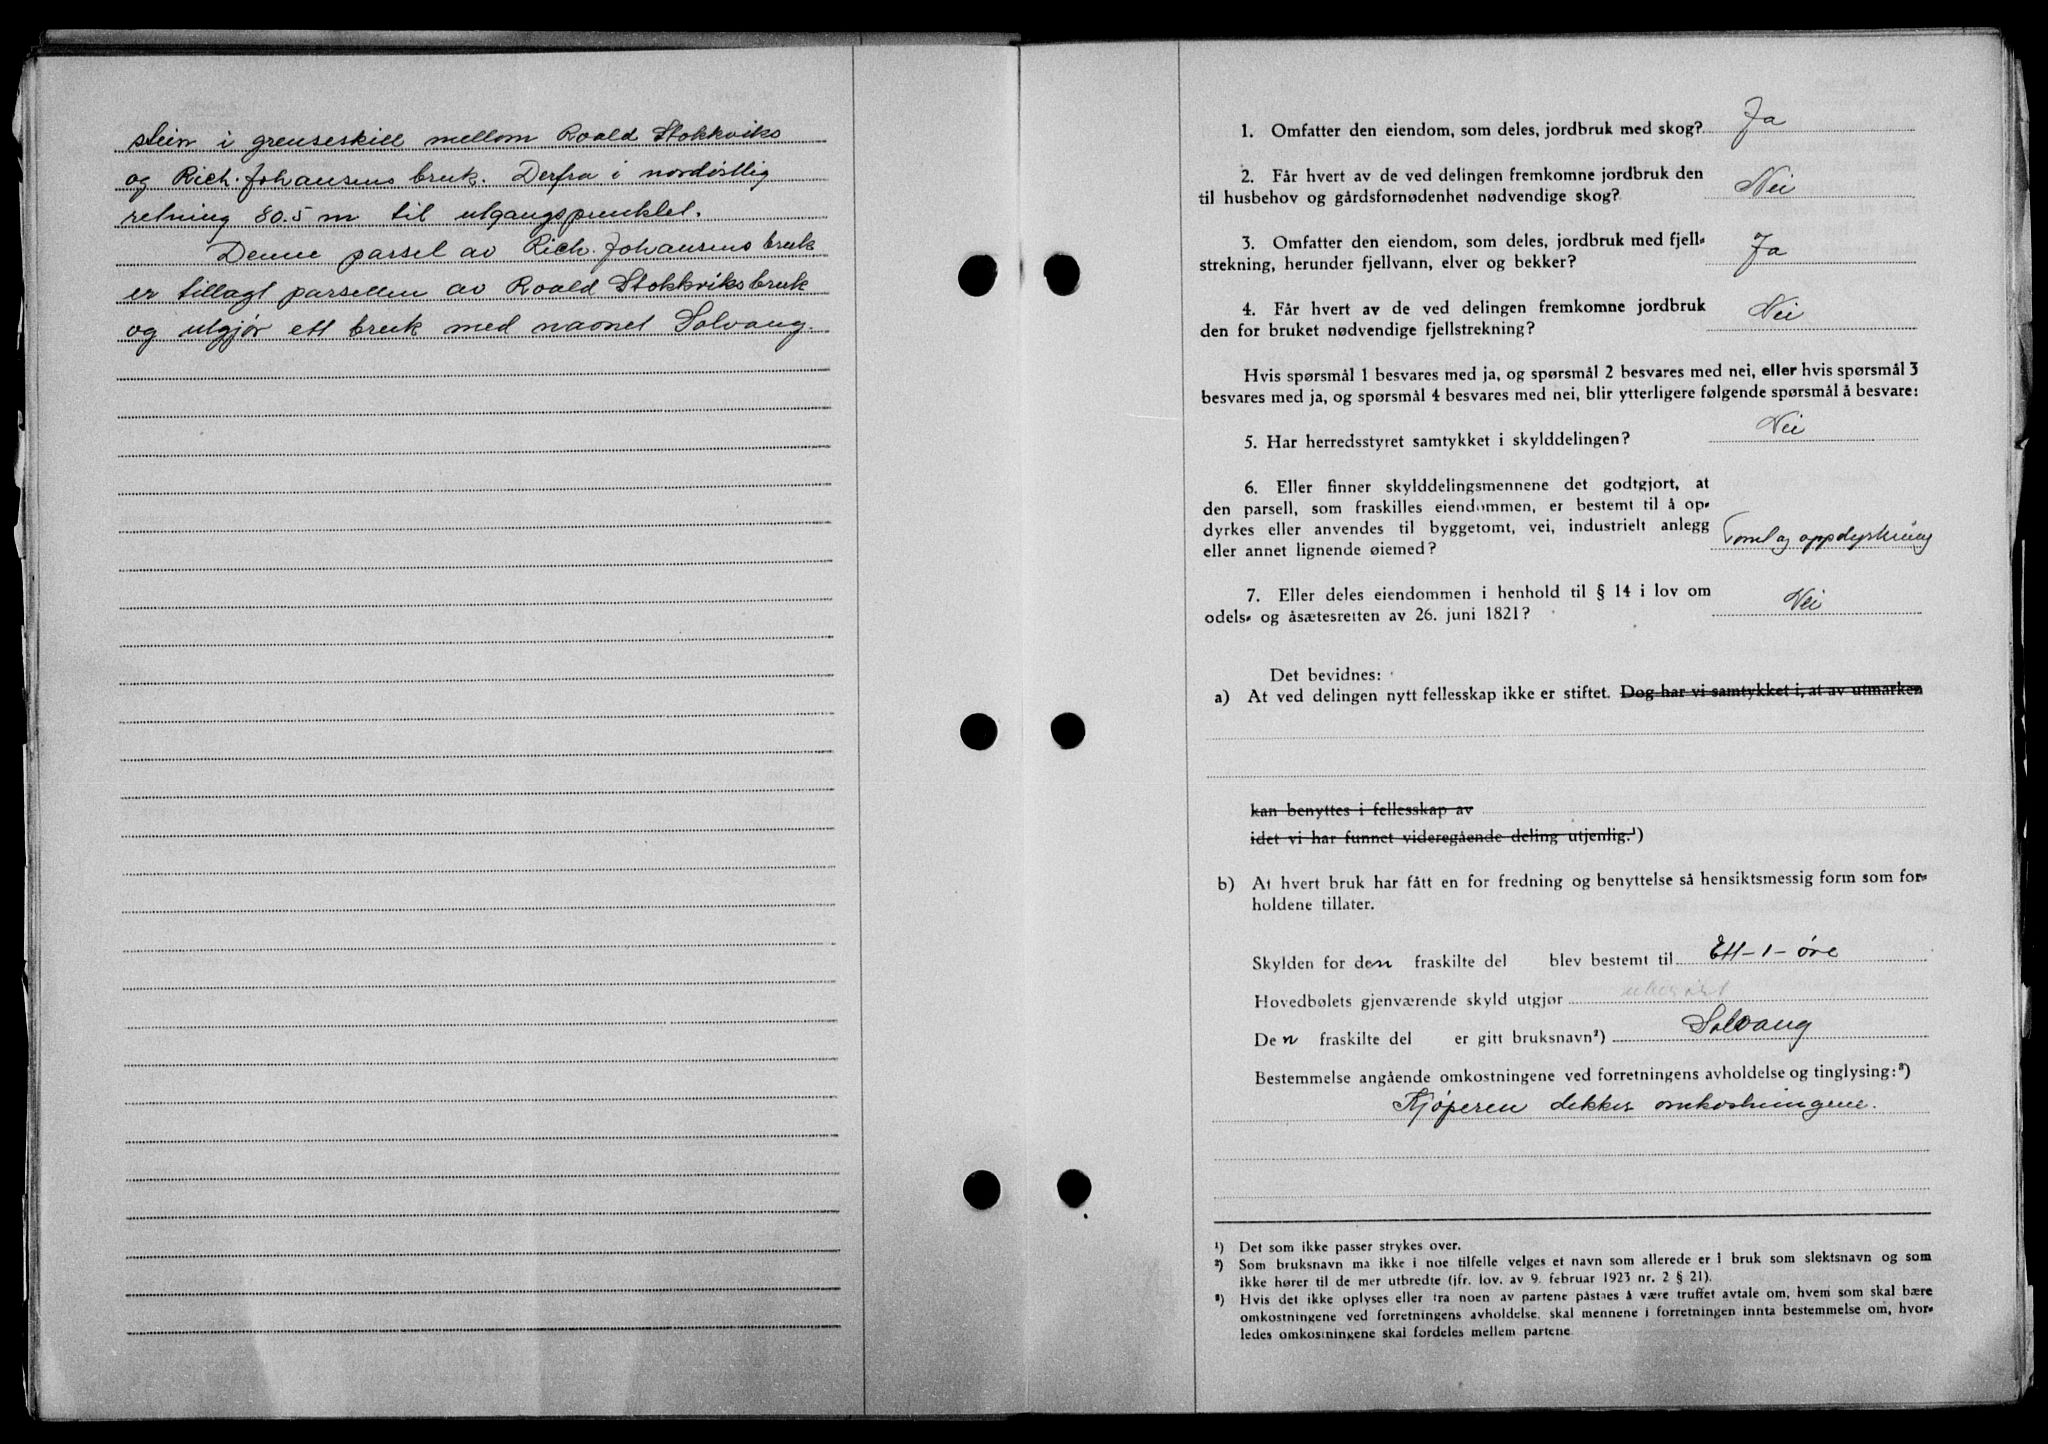 stein i grenseskill mellom Roald Stokkviks
og Rich. Johansens bruk. Derfra i nordøstlig
retning 80.5 m til utgangspunktet.
Denne parsel av Rich. Johansens bruk
er tillagt parsellen av Roald Stokkviks bruk
og utgjør ett bruk med navnet Solvang.
1. Omfatter den eiendom, som deles, jordbruk med skog? Ja
2. Får hvert av de ved delingen fremkomne jordbruk den
til husbehov og gårdsfornødenhet nødvendige skog? Nei
3. Omfatter den eiendom, som deles, jordbruk med fjell-
strekning, herunder fjellvann, elver og bekker? Ja
4. Får hvert av de ved delingen fremkomne jordbruk
den for bruket nødvendige fjellstrekning? Nei
Hvis spørsmål 1 besvares med ja, og spørsmål 2 besvares med nei, eller hvis spørsmål 3
besvares med ja, og spørsmål 4 besvares med nei, blir ytterligere følgende spørsmål å besvare:
5. Har herredsstyret samtykket i skylddelingen? Nei
6. Eller finner skylddelingsmennene det godtgjort, at
den parsell, som fraskilles eiendommen, er bestemt til å op-
dyrkes eller anvendes til byggetomt, vei, industrielt anlegg
eller annet lignende øiemed? Tomt og oppdyrkning
7. Eller deles eiendommen i henhold til § 14 i lov om
odels- og åsætesretten av 26. juni 1821? Nei
Det bevidnes:
a) At ved delingen nytt fellesskap ikke er stiftet. Dog har vi samtykket i, at av utmarken
kan benyttes i fellesskap av
idet vi har funnet videregående deling utjenlig.¹)
b) At hvert bruk har fått en for fredning og benyttelse så hensiktsmessig form som for-
holdene tillater.
Skylden for den fraskilte del blev bestemt til Ett -1- øre
Hovedbølets gjenværende skyld utgjør
Den fraskilte del er gitt bruksnavn²) Solvang
Bestemmelse angående omkostningene ved forretningens avholdelse og tinglysing:³)
Kjøperen dekker omkostningene.
¹) Det som ikke passer strykes over.
²) Som bruksnavn må ikke i noe tilfelle velges et navn som allerede er i bruk som slektsnavn og som
ikke hører til de mer utbredte (jfr. lov. av 9. februar 1923 nr. 2 § 21).
³) Hvis det ikke oplyses eller fra noen av partene påstaes å være truffet avtale om, hvem som skal bære
omkostningene ved forretningens avholdelse, skal mennene i forretningen innta bestemmelse om, hvor-
ledes omkostningene skal fordeles mellem partene